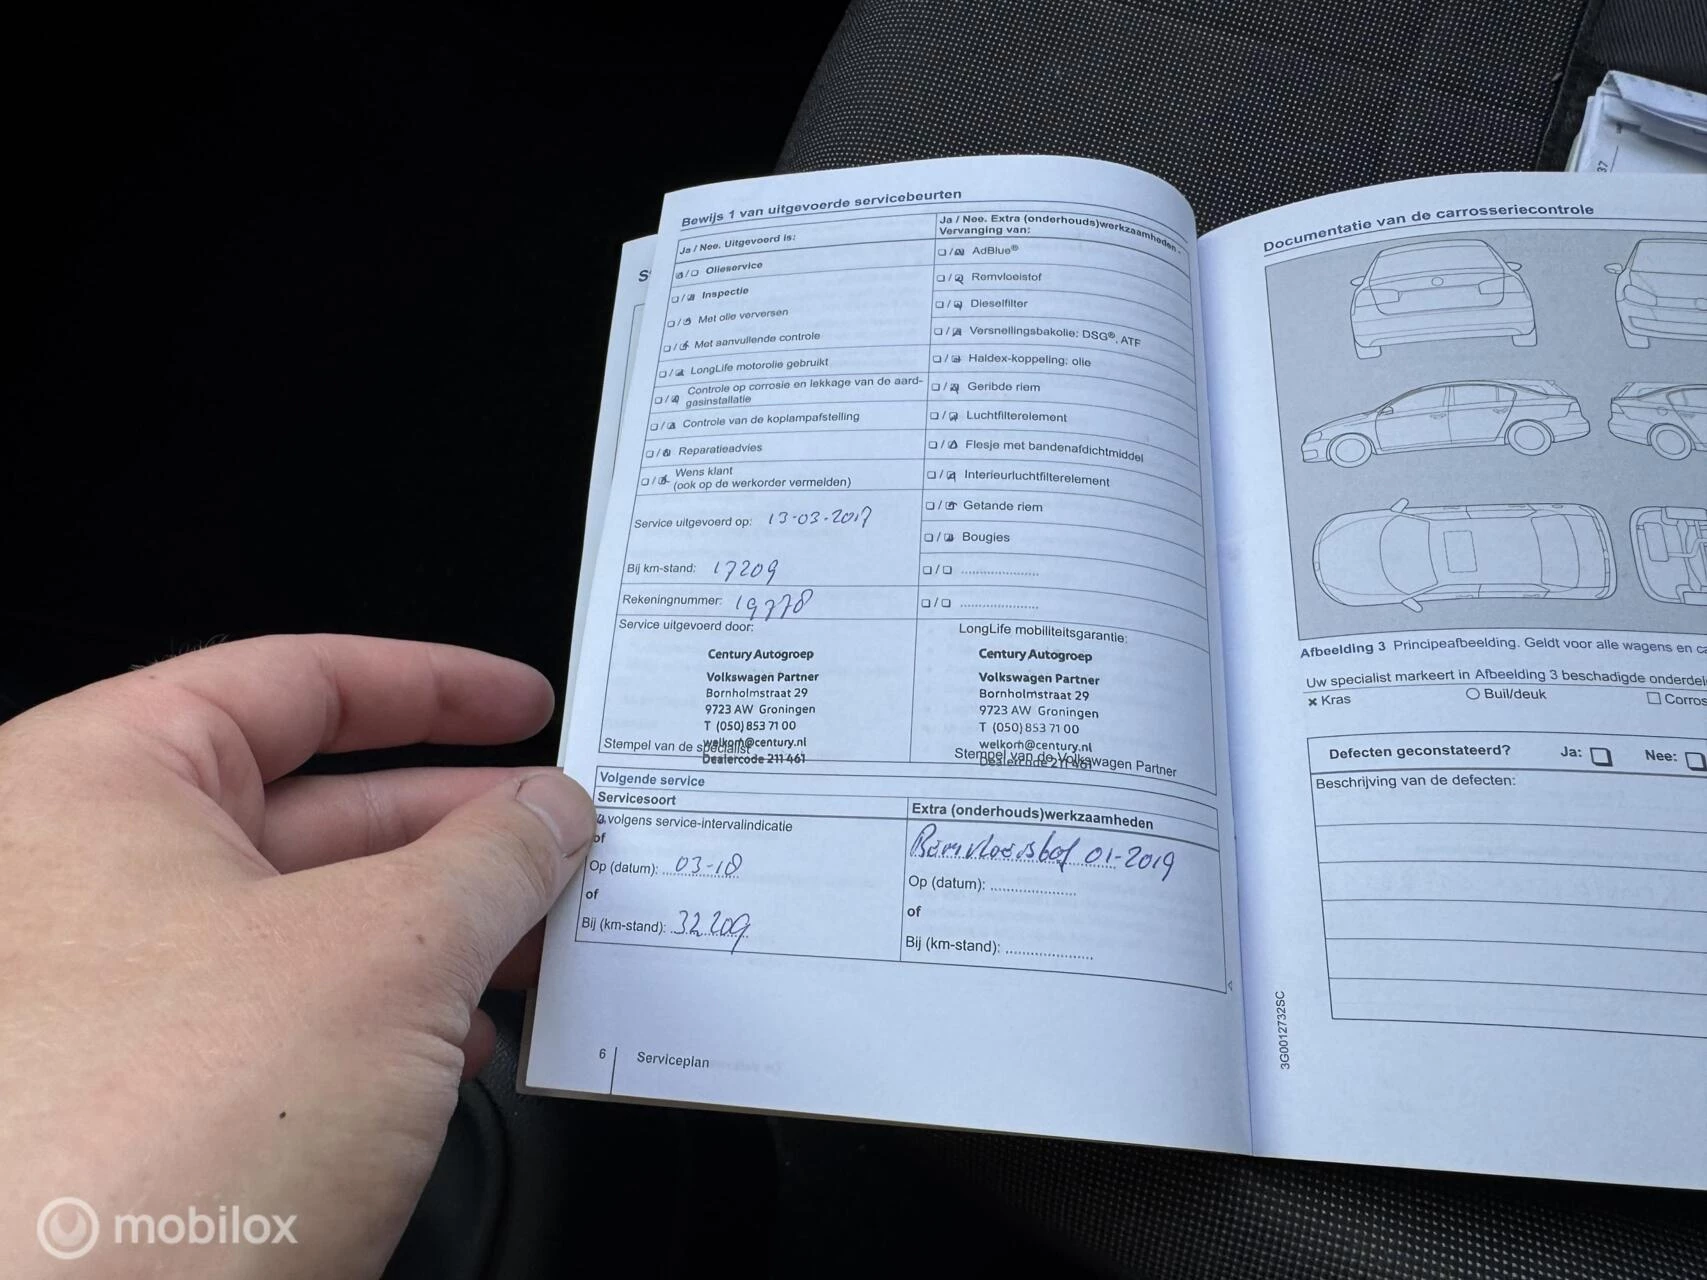 Bewijs 1 van uitgevoerde servicebeurten
Ja / Nee. Uitgevoerd is:
Olieservice
Inspectie
Met olie verversen
Met aanvullende controle
LongLife motorolie gebruikt
Controle op corrosie en lekkage van de aard-
gasinstallatie
Controle van de koplampafstelling
Reparatieadvies
Wens klant
(ook op de werkorder vermelden)
Service uitgevoerd op: 13-03-2017
Bij km-stand: 17209
Rekeningnummer: 19778
Service uitgevoerd door:
Century Autogroep
Volkswagen Partner
Bornholmstraat 29
9723 AW Groningen
T (050) 853 71 00
welkom@century.nl
Stempel van de specialist
Dealercode 211 461
Ja / Nee. Extra (onderhouds)werkzaamheden -
Vervanging van:
AdBlue®
Remvloeistof
Dieselfilter
Versnellingsbakolie: DSG®, ATF
Haldex-koppeling: olie
Geribde riem
Luchtfilterelement
Flesje met bandenafdichtmiddel
Interieurluchtfilterelement
Getande riem
Bougies
LongLife mobiliteitsgarantie:
Century Autogroep
Volkswagen Partner
Bornholmstraat 29
9723 AW Groningen
T (050) 853 71 00
welkom@century.nl
Stempel van de Volkswagen Partner
Dealercode 211 461
Volgende service
Servicesoort
volgens service-intervalindicatie
of
Op (datum): 03-18
of
Bij (km-stand): 32209
Extra (onderhouds)werkzaamheden
Remvloeistof 01-2019
Op (datum):
of
Bij (km-stand):
6 Serviceplan
Documentatie van de carrosseriecontrole
Afbeelding 3 Principeafbeelding. Geldt voor alle wagens en
Uw specialist markeert in Afbeelding 3 beschadigde
Kras Buil/deuk
Defecten geconstateerd? Ja: Nee:
Beschrijving van de defecten:
3G0012732SC
37
mobilox